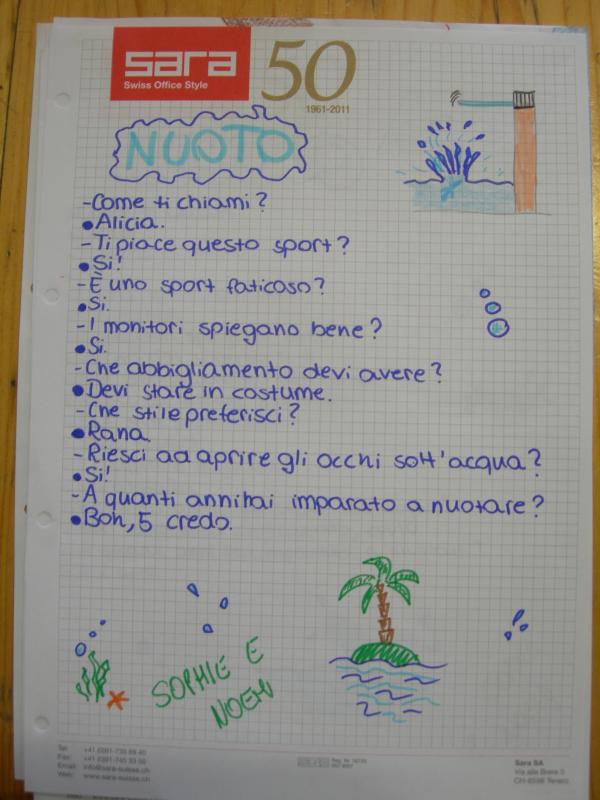 sara
Swiss Office Style
50
1961-2011
NUOTO
-Come ti chiami?
•Alicia.
-Ti piace questo sport?
•Si!
-È uno sport faticoso?
•Si.
-I monitori spiegano bene?
•Si.
-Che abbigliamento devi avere?
•Devi stare in costume.
-Che stile preferisci?
•Rana.
-Riesci ad aprire gli occhi sott'acqua?
•Si!
-A quanti anni hai imparato a nuotare?
•Boh, 5 credo.
SOPHIE E
NOEMI
Tel:
Fax:
Email: info@sara-suisse.ch
Web: www.sara-suisse.ch
Sara SA
Via alle Brere 5
CH-6598 Tenero